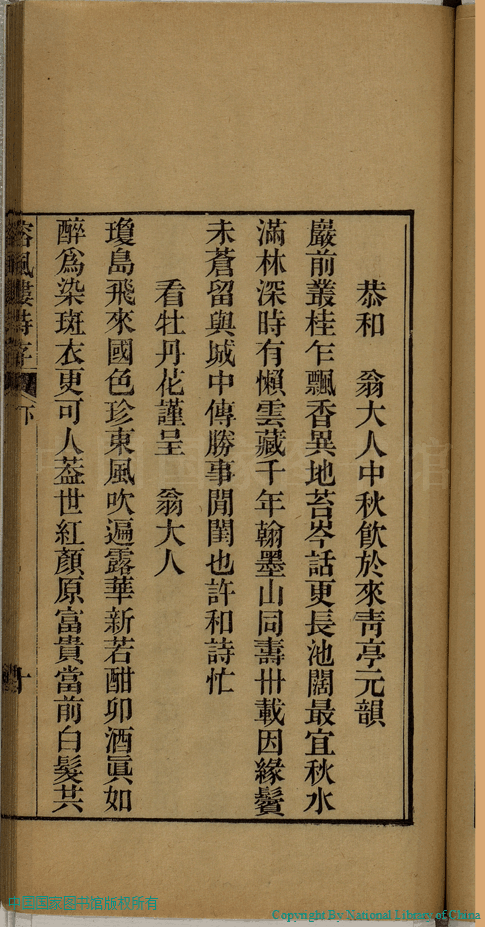 恭和　翁大人中秋飲於來青亭元韻
巖前叢桂乍飄香異地苔岑話更長池闊最宜秋水
滿林深時有懶雲藏千年翰墨山同壽卅載因緣鬢
未蒼留與城中傳勝事閒閨也許和詩忙
看牡丹花謹呈　翁大人
瓊島飛來國色珍東風吹遍露華新若酣卯酒眞如
醉爲染斑衣更可人蓋世紅顏原富貴當前白髮共
樓詩
下
十
中国国家图书馆版权所有
Copyright By National Library of China